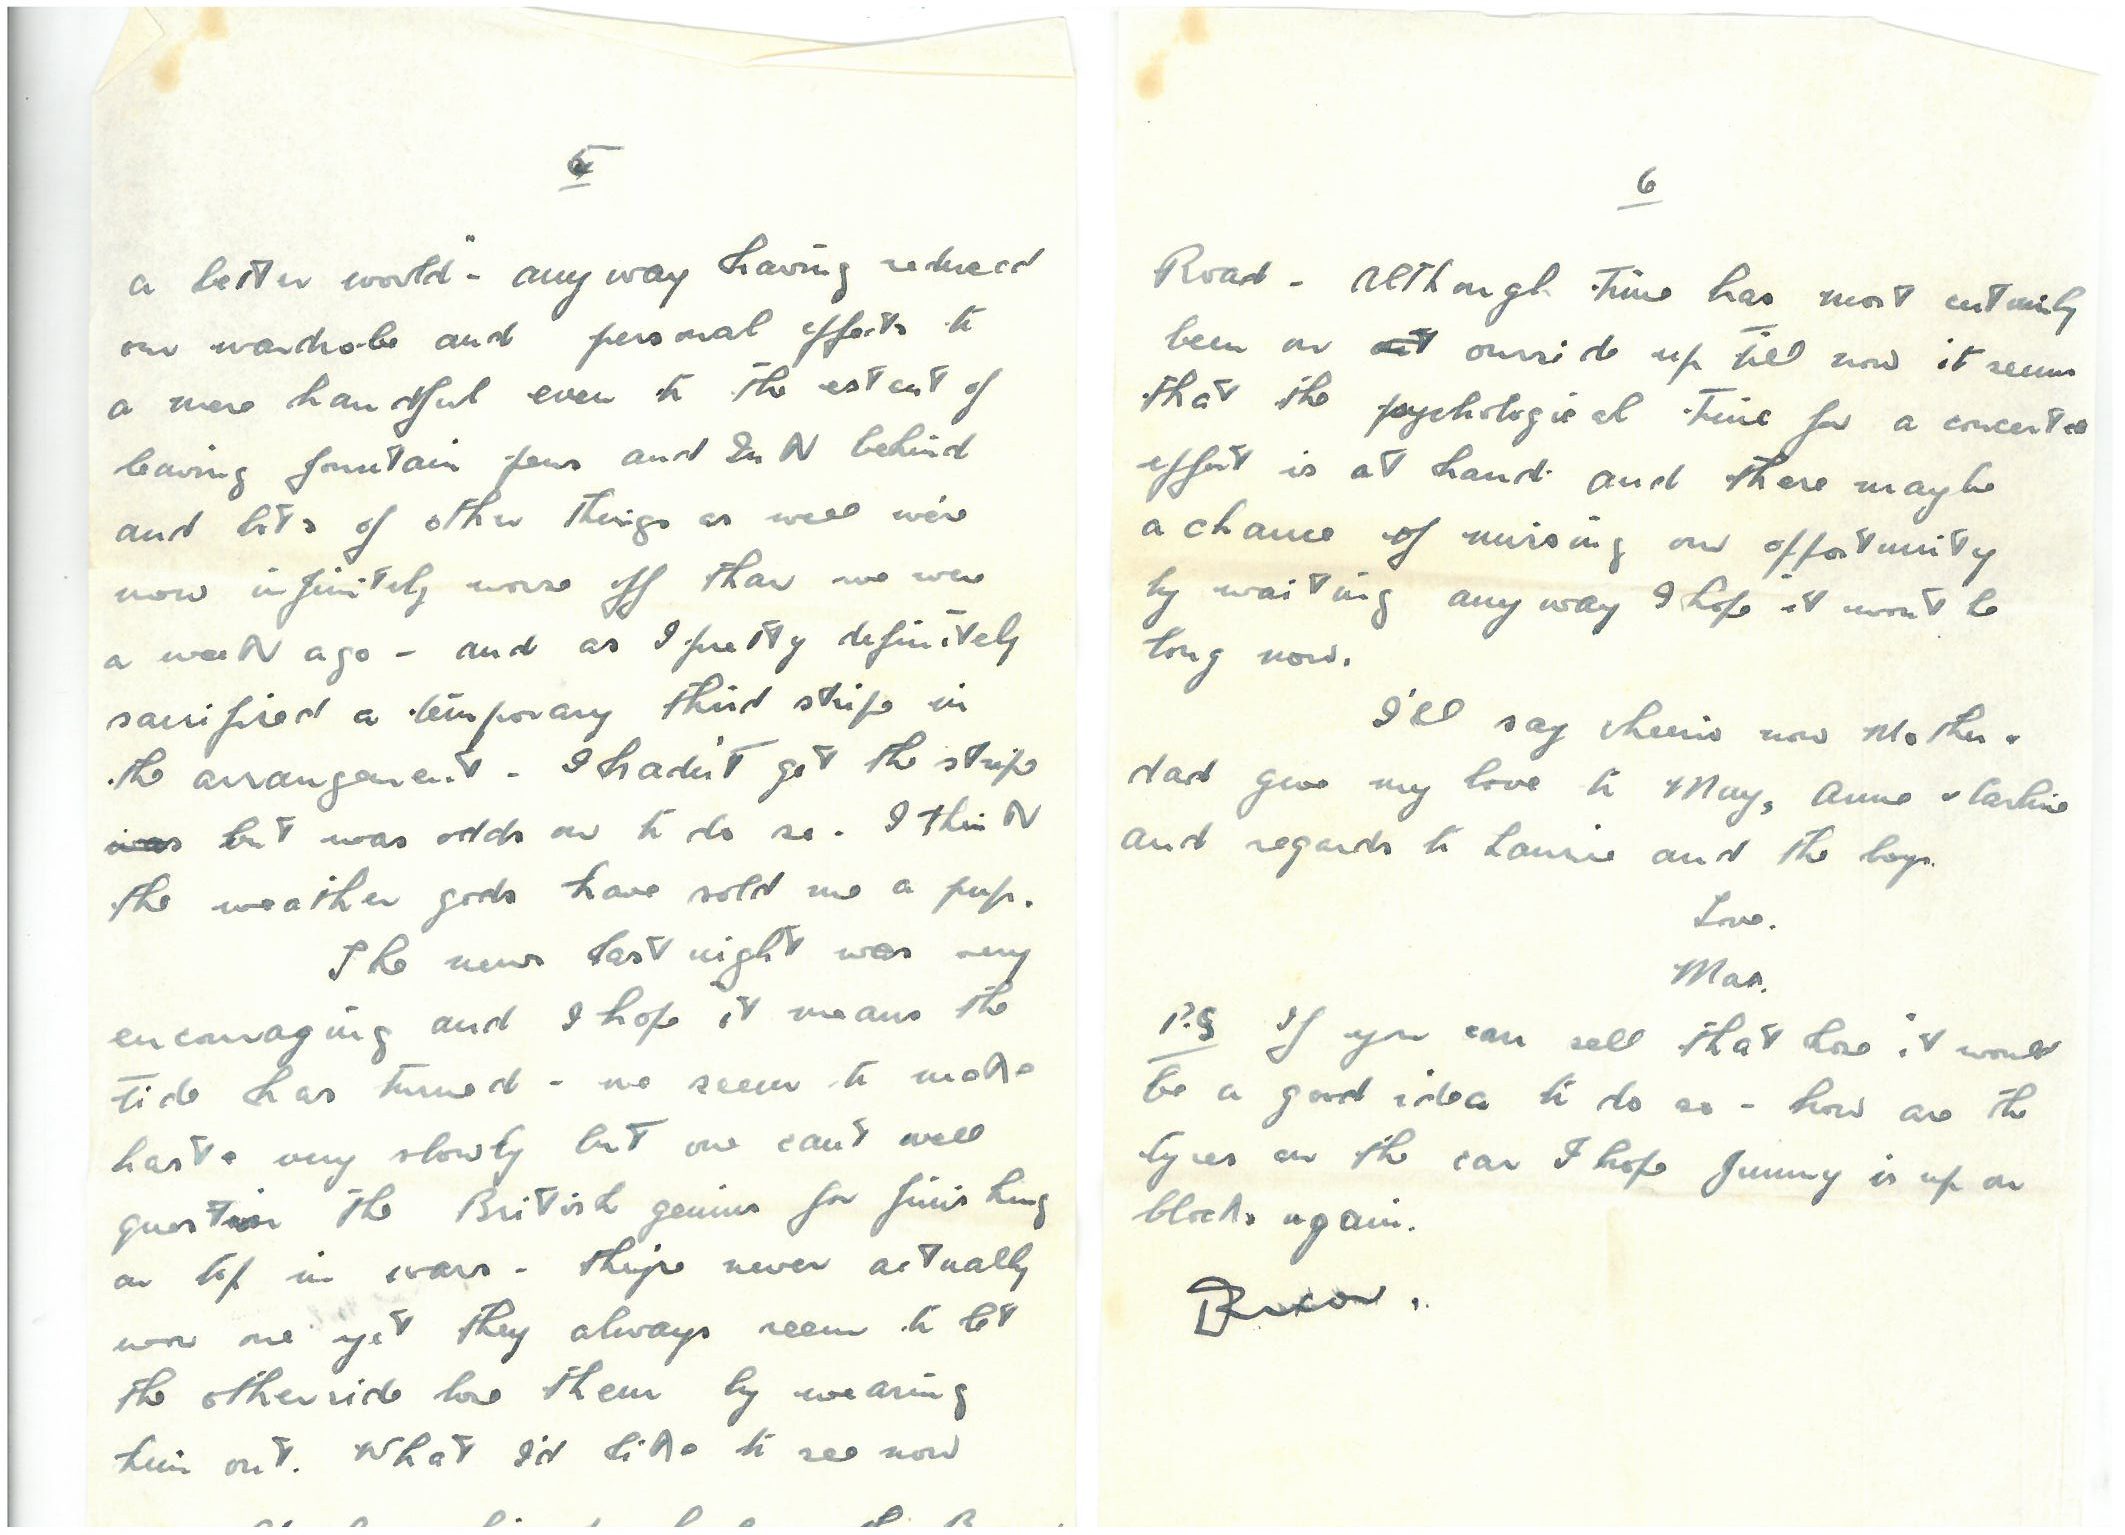 5
a better world" - anyway having reduced
our wardrobe and personal effects to
a mere handful even to the extent of
leaving fountain pens and ink behind
and lots of other things as well we're
now infinitely worse off than we were
a week ago - and as I pretty definitely
sacrificed a temporary third stripe in
the arrangement - I hadn't got the stripe
but was odds on to do so. I think
the weather gods have sold me a pup.
The news last night was very
encouraging and I hope it means the
tide has turned - we seem to make
haste very slowly but one can't well
question the British genius for finishing
on top in wars - they've never actually
won one yet they always seem to let
the otherside lose them by wearing
him out. What I'd like to see now
6
Road - Although time has most certainly
been on our side up till now it seems
that the psychological time for a concerted
effort is at hand and there maybe
a chance of missing our opportunity
by waiting anyway I hope it won't be
long now.
I'll say cheerio now Mother &
dad give my love to May, Anne &
and regards to Laurie and the boys.
Love.
Max.
P.S If you can sell that hose it would
be a good idea to do so - how are the
tyres on the car I hope Jimmy is up on
blocks again.